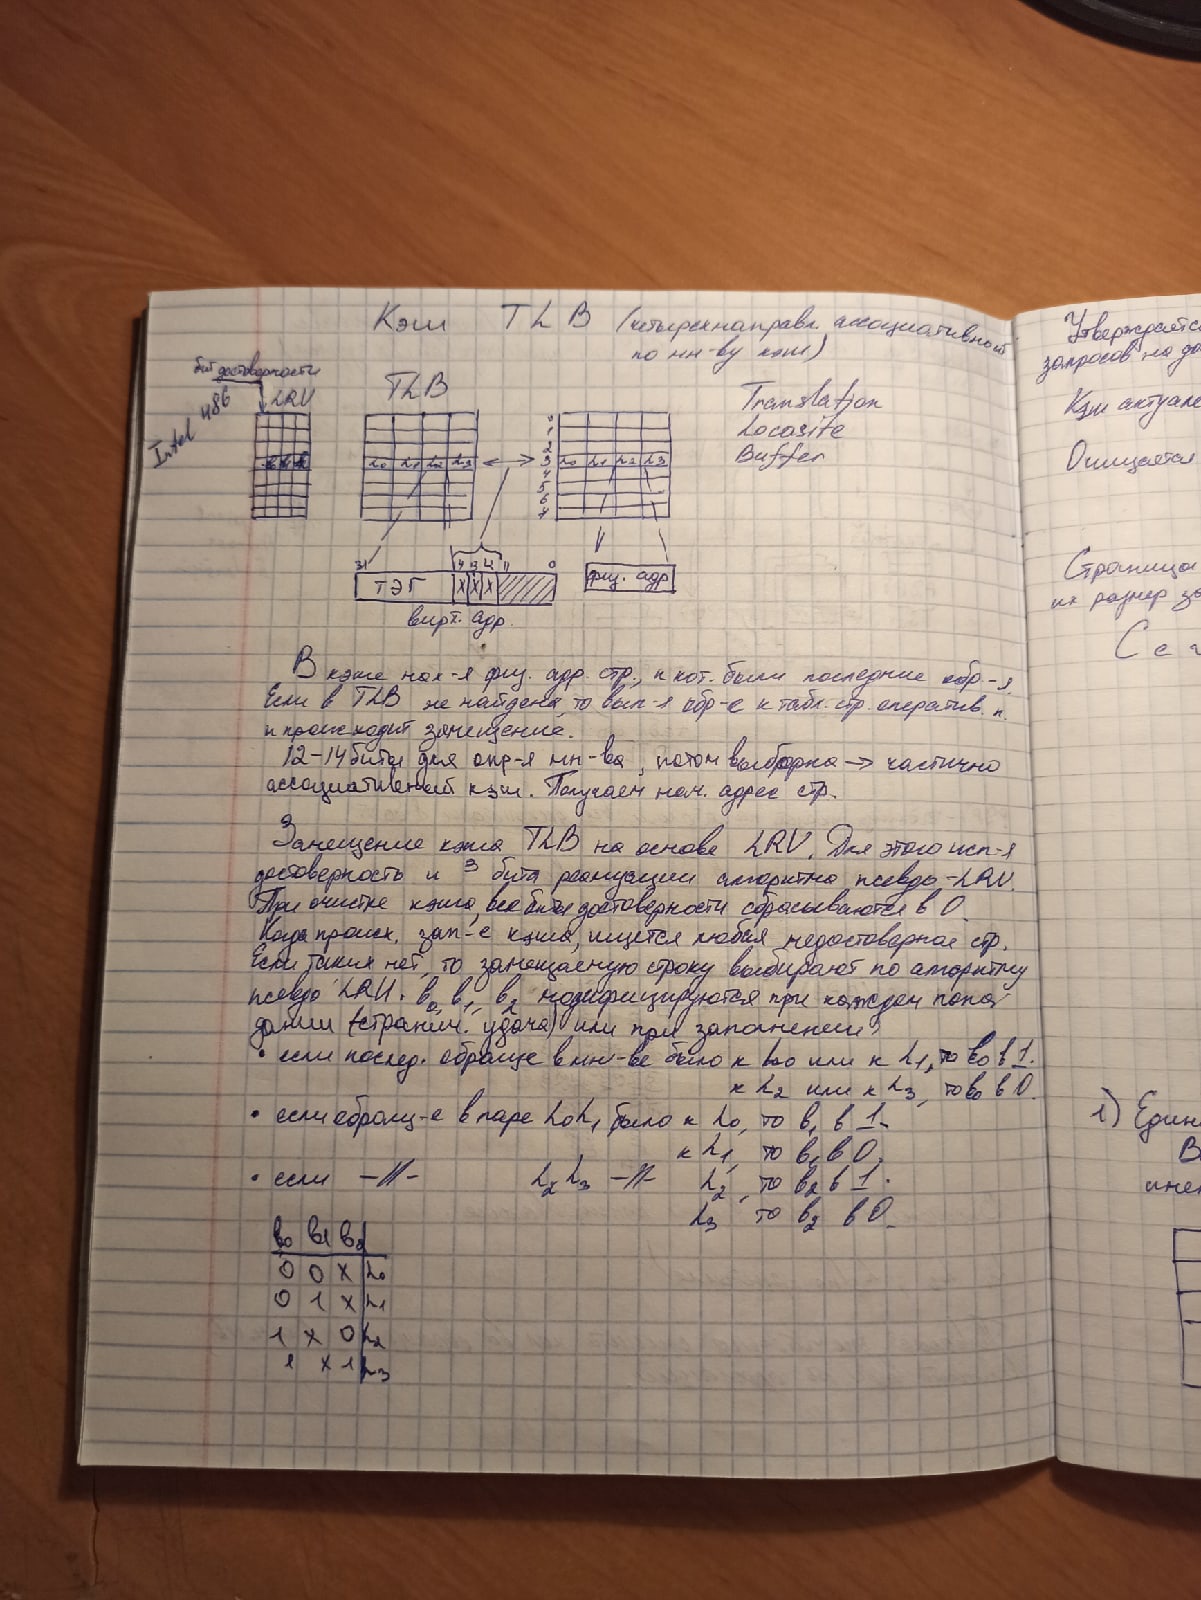 Кэш TLB (четырехнаправл. ассоциативный
по мн-ву кэш)
бит достоверности
Intel 486
LRV
TLB
Translation
Locasite
Buffer
в0 в1 в2
L0 L1 L2 L3
L0 L1 L2 L3
0
1
2
3
4
5
6
7
31 14 13 12 11 0
ТЭГ X X X
физ. адр
вирт. адр.
В кэше нах-я физ. адр. стр., к кот. были последние обр-я.
Если в TLB не найдена, то вып-я обр-е к табл. стр. оператив. п.
и происходит замещение.
12-14 биты для опр-я мн-ва, потом выборка → частично
ассоциативный кэш. Получаем нач. адрес стр.
Замещение кэша TLB на основе LRV. Для этого исп-я
достоверность и 3 бита реализации алгоритма псевдо-LRV.
При очистке кэша, все биты достоверности сбрасываются в 0.
Когда происх. зап-е кэша, ищется любая недостоверная стр.
Если таких нет, то замещаемую строку выбирают по алгоритму
псевдо LRU. в0 в1, в2 модифицируются при каждом попа-
дании (странич. удача) или при заполнении:
• если послед. обраще в мн-ве было к L0 или к L1, то в0 в 1.
к L2 или к L3, то в0 в 0.
• если обращ-е в паре L0L1 было к L0, то в1 в 1.
к L1, то в1 в 0.
• если -//- L2L3 -//- L2, то в2 в 1.
L3 то в2 в 0.
в0 в1 в2
0 0 x L0
0 1 x L1
1 x 0 L2
1 x 1 L3
Утверждается
запросов на
Кэш
Очищается
Страницы
их размер
С е г
1) Един
В